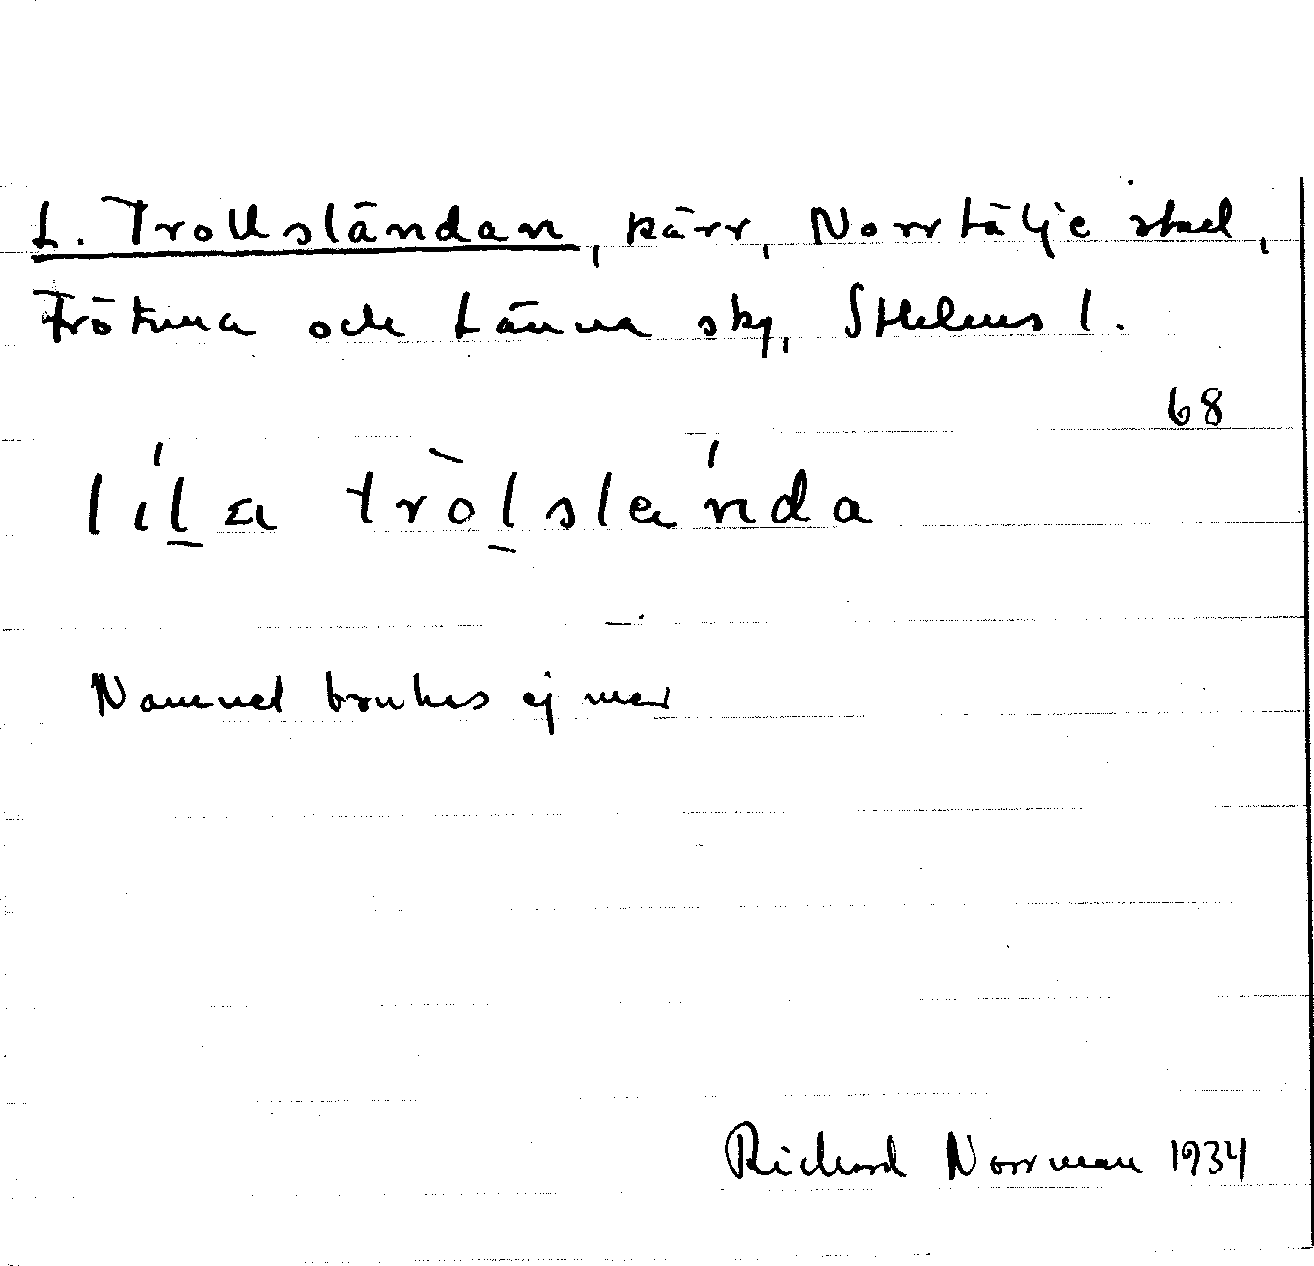 L. Trollsländan, kärr, Norrtälje stad,
Frötuna och Länna skg, Sthlms l.
68
líl̠a tròl̠slɑ́nda
Namnet brukas ej mer
Richard Norrman 1934